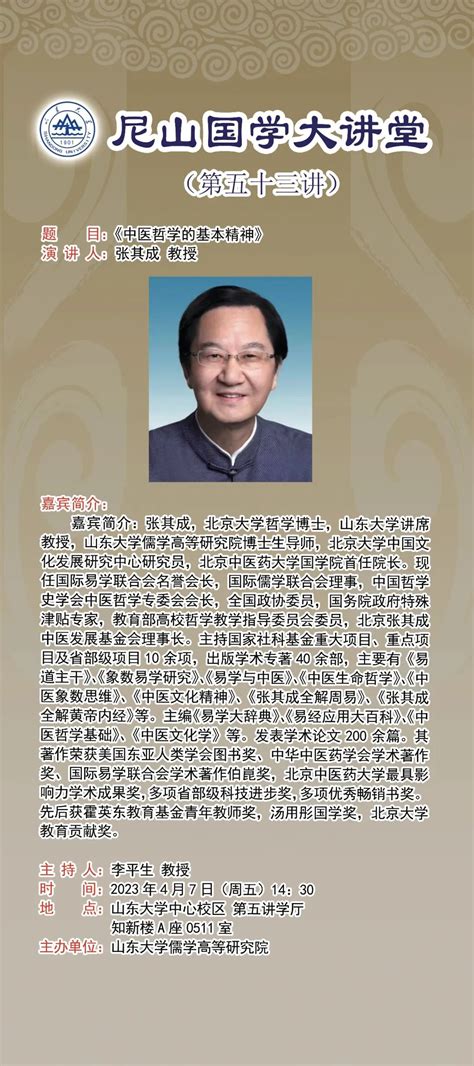 尼山国学大讲堂
（第五十三讲）
题 目：《中医哲学的基本精神》
演 讲 人：张其成 教授
嘉宾简介：
嘉宾简介：张其成，北京大学哲学博士，山东大学讲席
教授，山东大学儒学高等研究院博士生导师，北京大学中国文
化发展研究中心研究员，北京中医药大学国学院首任院长。现
任国际易学联合会名誉会长，国际儒学联合会理事，中国哲学
史学会中医哲学专委会会长，全国政协委员，国务院政府特殊
津贴专家，教育部高校哲学教学指导委员会委员，北京张其成
中医发展基金会理事长。主持国家社科基金重大项目、重点项
目及省部级项目 10 余项，出版学术专著 40 余部，主要有《易
道主干》、《象数易学研究》、《易学与中医》、《中医生命哲学》、《中
医象数思维》、《中医文化精神》、《张其成全解周易》、《张其成
全解黄帝内经》等。主编《易学大辞典》、《易经应用大百科》、《中
医哲学基础》、《中医文化学》等。发表学术论文 200 余篇。其
著作荣获美国东亚人类学会图书奖、中华中医药学会学术著作
奖、国际易学联合会学术著作伯崑奖，北京中医药大学最具影
响力学术成果奖，多项省部级科技进步奖，多项优秀畅销书奖。
先后获霍英东教育基金青年教师奖，汤用彤国学奖，北京大学
教育贡献奖。
主 持 人：李平生 教授
时 间：2023 年 4 月 7 日（周五）14：30
地 点：山东大学中心校区 第五讲学厅
知新楼 A 座 0511 室
主办单位：山东大学儒学高等研究院